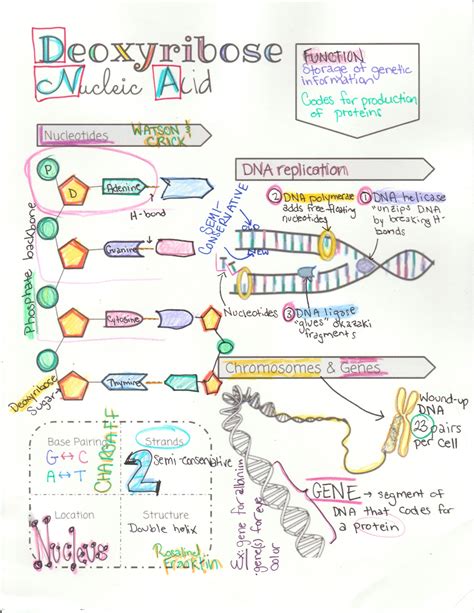 Deoxyribose
Nucleic Acid
FUNCTION
Storage of genetic
information
Codes for production
of proteins
Nucleotides
WATSON &
CRICK
P
D
Adenine
H-bond
Guanine
Cytosine
Thymine
Phosphate backbone
Deoxyribose
Sugar
DNA replication
SEMI-
CONSERVATIVE
② DNA polymerase
adds free floating
nucleotides
① DNA helicase
"unzips DNA
by breaking H-
bonds
OLD
NEW
Nucleotides
③ DNA ligase
"glues" okazaki
fragments
Chromosomes & Genes
Wound-up
DNA
23 pairs
per cell
GENE → segment of
DNA that codes for
a protein
Ex: gene for albinism
gene(s) for eye
color
Base Pairing
G ↔ C
A ↔ T
CHARGAFF
Strands
2
Semi-conservative
Location
Nucleus
Structure
Double helix
Rosalind
Franklin